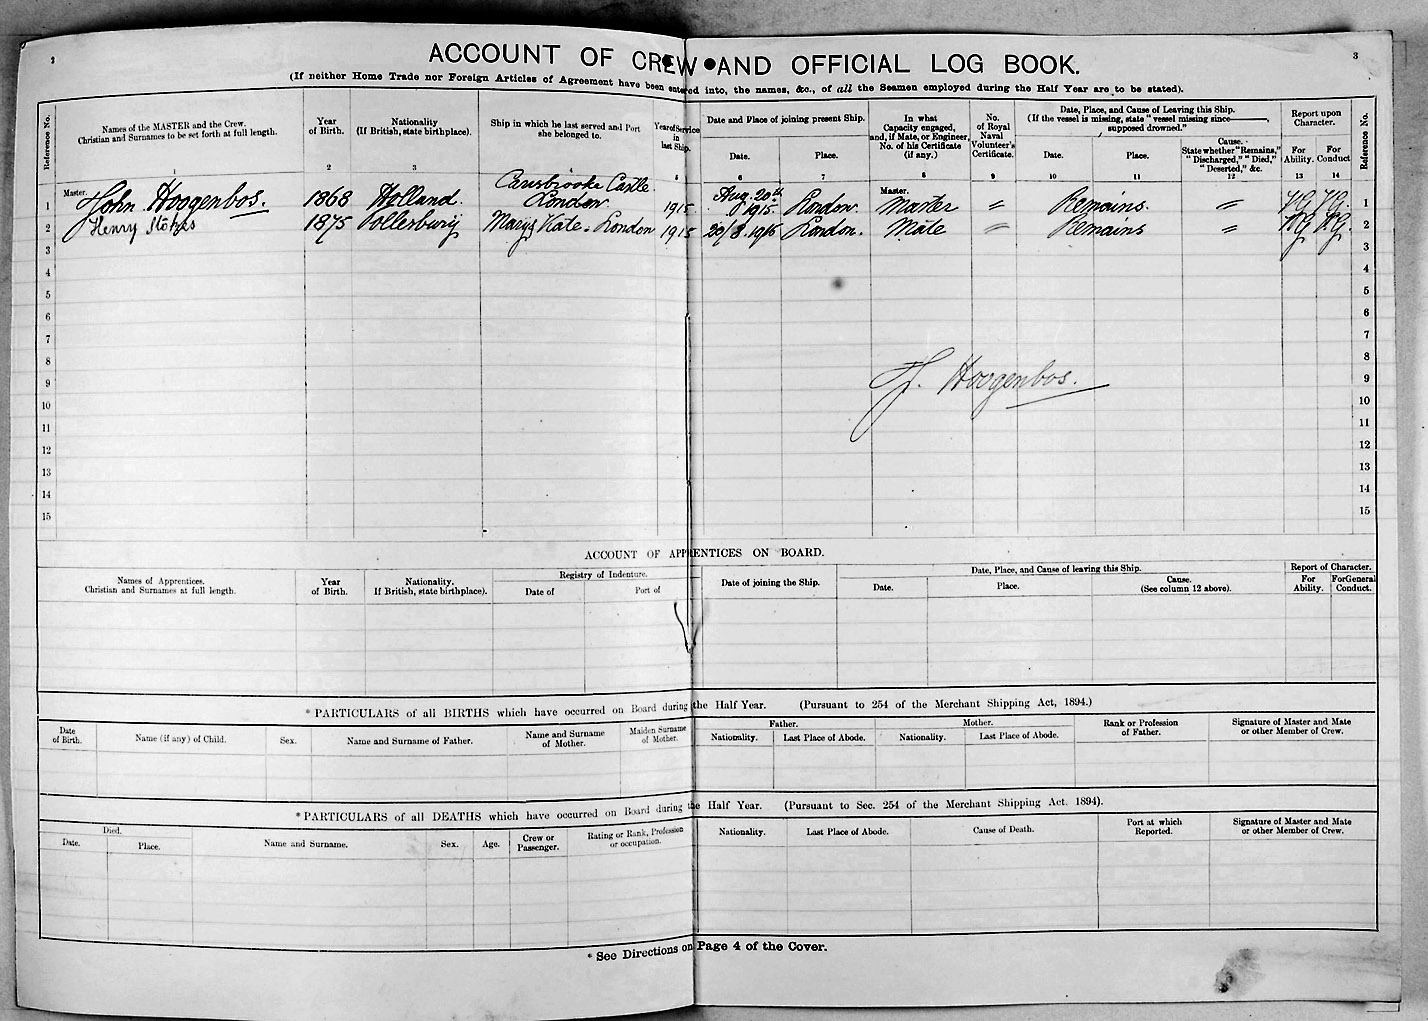 2
3
ACCOUNT OF CREW AND OFFICIAL LOG BOOK.
(If neither Home Trade nor Foreign Articles of Agreement have been entered into, the names, &c., of all the Seamen employed during the Half Year are to be stated).
Reference No.
Names of the MASTER and the Crew.
Christian and Surnames to be set forth at full length.
1
Year
of Birth.
2
Nationality
(If British, state birthplace).
3
Ship in which he last served and Port
she belonged to.
4
Year of Service
in
last Ship.
5
Date and Place of joining present Ship.
Date.
6
Place.
7
In what
Capacity engaged,
and, if Mate, or Engineer,
No. of his Certificate
(if any.)
8
No.
of Royal
Naval
Volunteer's
Certificate.
9
Date, Place, and Cause of Leaving this Ship.
(If the vessel is missing, state "vessel missing since———,
supposed drowned."
Date.
10
Place.
11
Cause.
State whether "Remains,"
"Discharged," "Died,"
"Deserted," &c.
12
Report upon
Character.
For
Ability.
13
For
Conduct
14
Reference No.
1 Master. John Hoogenbos. 1868 Holland. Carisbrooke Castle London 1915. Aug. 20th 1915. London. Master. Master " Remains. " V.G. V.G. 1
2 Henry Stokes 1875 Tollesbury Mary Kate. London 1915 20/8.1915 London. Mate " Remains " V.G. V.G. 2
3 3
4 4
5 5
6 6
7 7
8 8
9 J. Hoogenbos. 9
10 10
11 11
12 12
13 13
14 14
15 15
ACCOUNT OF APPRENTICES ON BOARD.
Names of Apprentices.
Christian and Surnames at full length.
Year
of Birth.
Nationality.
If British, state birthplace).
Registry of Indenture.
Date of
Port of
Date of joining the Ship.
Date, Place, and Cause of leaving this Ship.
Date.
Place.
Cause.
(See column 12 above).
Report of Character.
For
Ability.
For General
Conduct.
* PARTICULARS of all BIRTHS which have occurred on Board during the Half Year. (Pursuant to 254 of the Merchant Shipping Act, 1894.)
Date
of Birth.
Name (if any) of Child.
Sex.
Name and Surname of Father.
Name and Surname
of Mother.
Maiden Surname
of Mother.
Father.
Nationality.
Last Place of Abode.
Mother.
Nationality.
Last Place of Abode.
Rank or Profession
of Father.
Signature of Master and Mate
or other Member of Crew.
* PARTICULARS of all DEATHS which have occurred on Board during the Half Year. (Pursuant to Sec. 254 of the Merchant Shipping Act. 1894).
Died.
Date.
Place.
Name and Surname.
Sex.
Age.
Crew or
Passenger.
Rating or Rank, Profession
or occupation.
Nationality.
Last Place of Abode.
Cause of Death.
Port at which
Reported.
Signature of Master and Mate
or other Member of Crew.
* See Directions on Page 4 of the Cover.